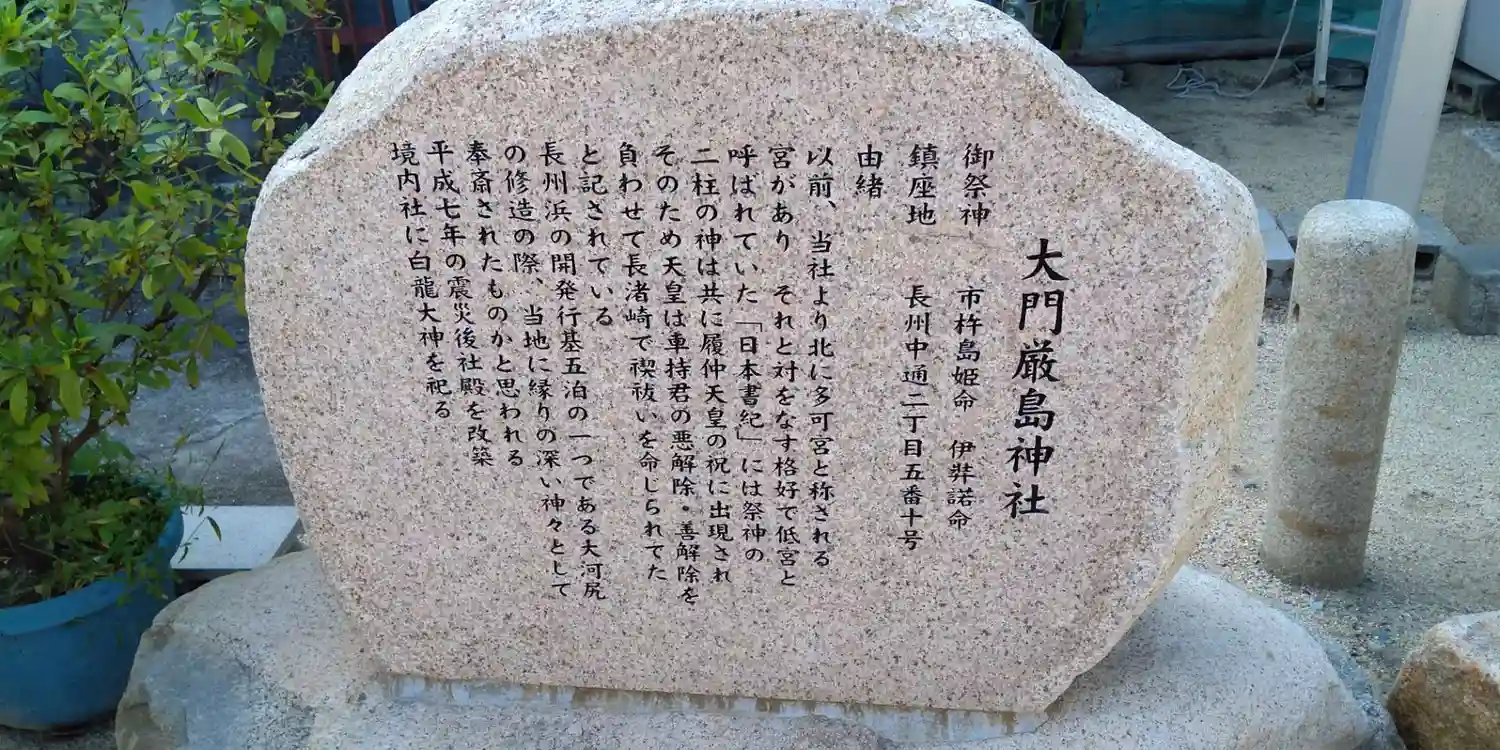 大門厳島神社
御祭神　市杵島姫命　伊弉諾命
鎮座地　長州中通二丁目五番十号
由緒
以前、当社より北に多可宮と称される
宮があり それと対をなす格好で低宮と
呼ばれていた「日本書紀」には祭神の
二柱の神は共に履仲天皇の祝に出現され
そのため天皇は車持君の悪解除・善解除を
負わせて長渚崎で禊祓いを命じられてた
と記されている
長州浜の開発行基五泊の一つである大河尻
の修造の際、当地に縁りの深い神々として
奉斎されたものかと思われる
平成七年の震災後社殿を改築
境内社に白龍大神を祀る